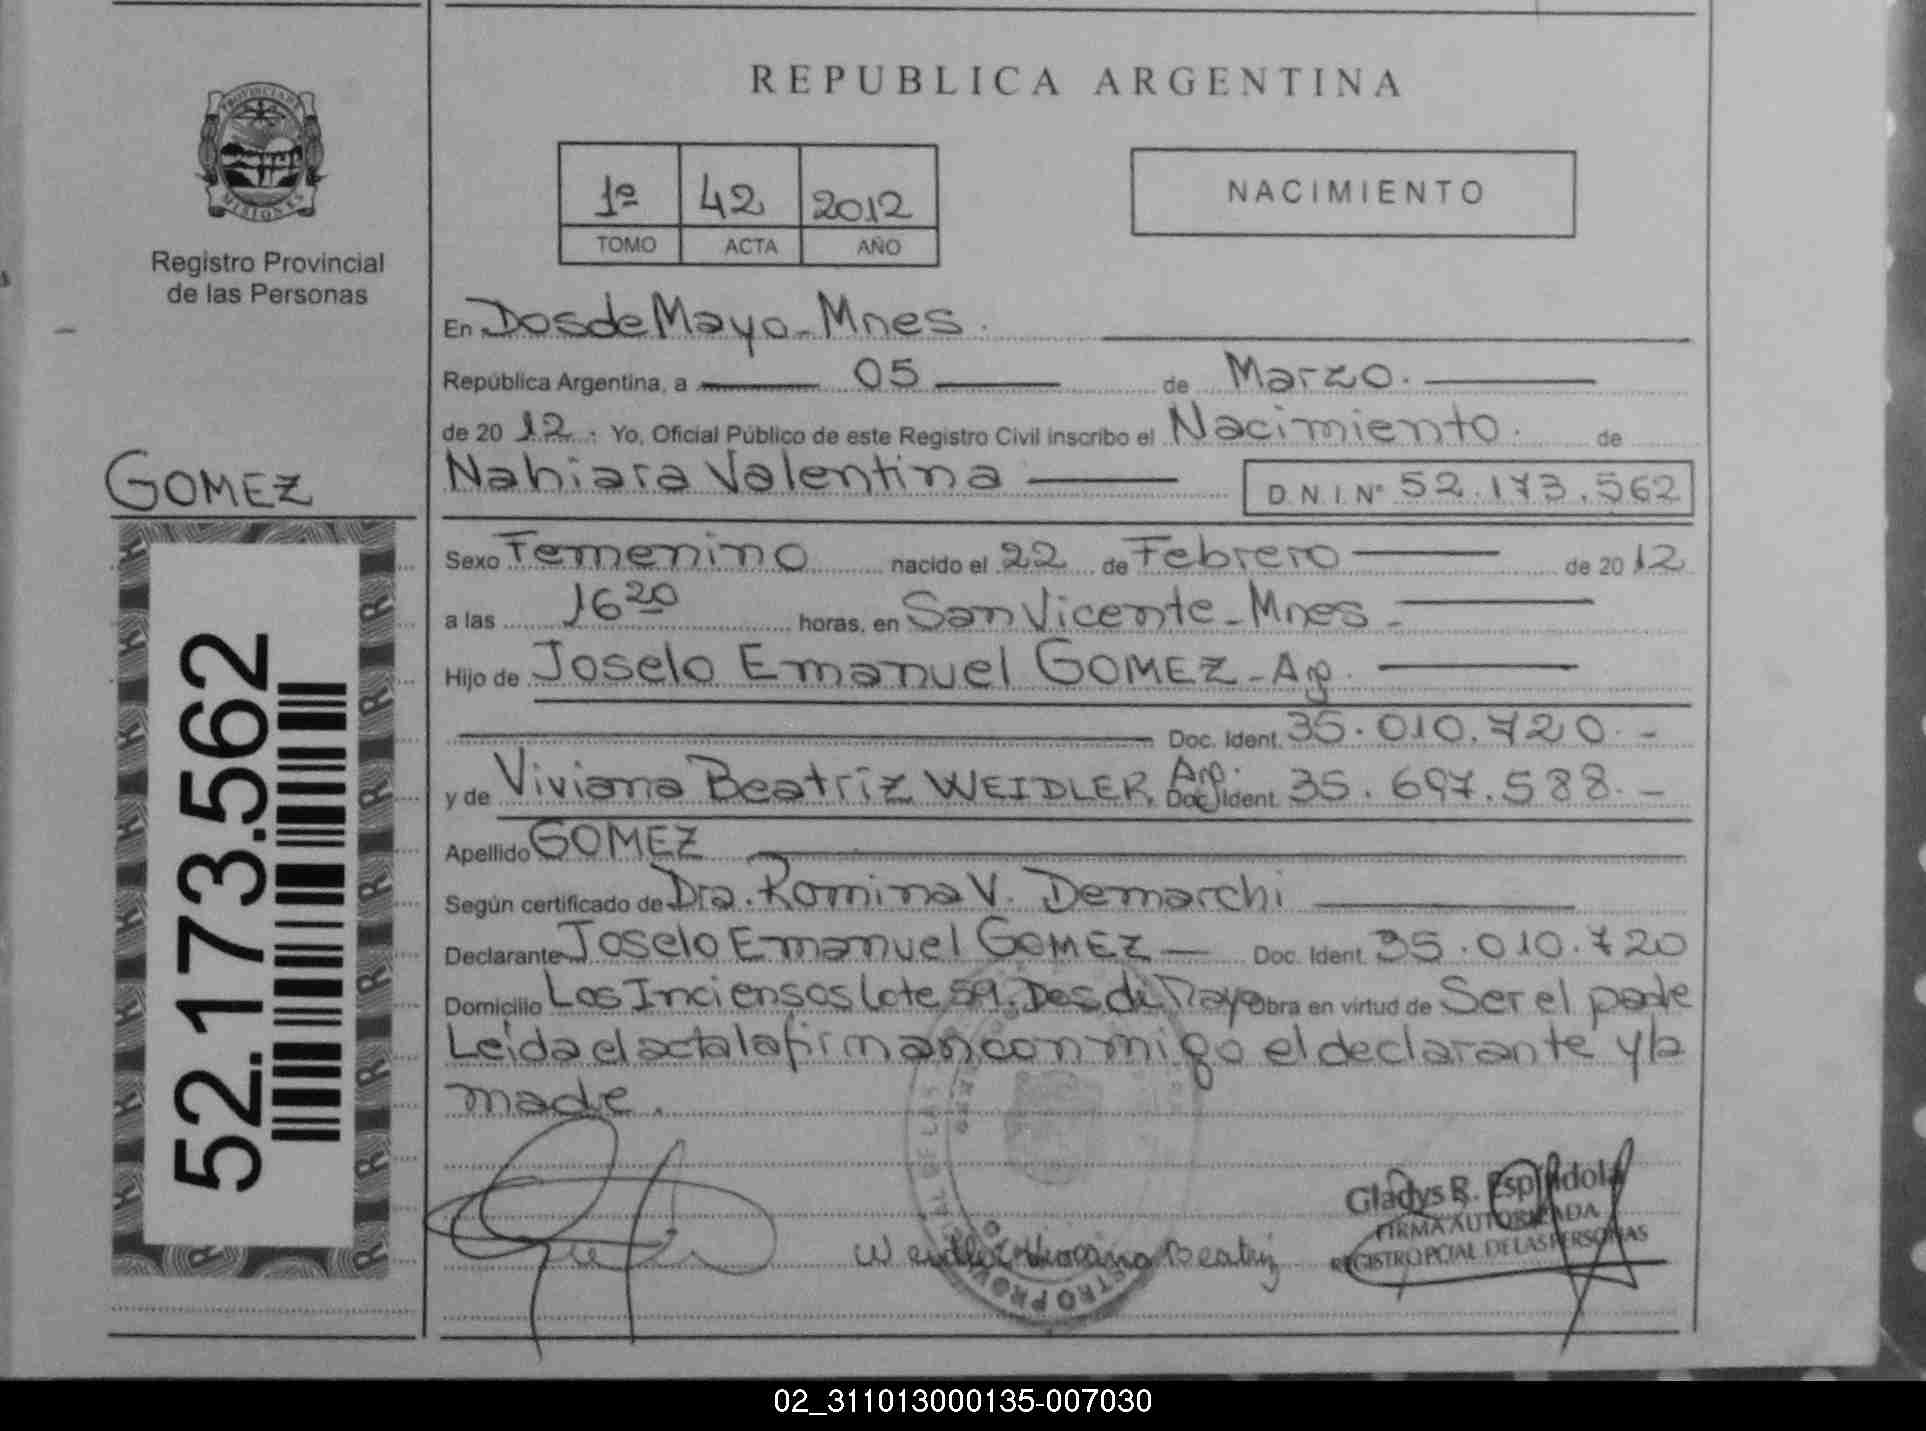 REPUBLICA ARGENTINA
PROVINCIA DE
MISIONES
Registro Provincial
de las Personas
1ª 42 2012
TOMO ACTA AÑO
NACIMIENTO
En Dos de Mayo - Mnes.
República Argentina, a 05 de Marzo.
de 20 12. Yo, Oficial Público de este Registro Civil inscribo el Nacimiento. de
GOMEZ
Nahiara Valentina D.N.I. N° 52.173.562
Sexo Femenino nacido el 22 de Febrero de 20 12
a las 16 20 horas, en San Vicente - Mnes -
Hijo de Joselo Emanuel GOMEZ - Arg.
Doc. Ident. 35.010.720. -
y de Viviana Beatriz WEIDLER, Arg. Doc. Ident. 35.697.588. -
Apellido GOMEZ
Según certificado de Dra. Romina V. Demarchi
Declarante Joselo Emanuel GOMEZ - Doc. Ident. 35.010.720
Domicilio Los Inciensos Lote 59. Dos de Mayo Obra en virtud de Ser el padre
Leida el acta la firman conmigo el declarante y la
madre.
52.173.562
Weidler Viviana Beatriz
Gladys R. Espindola
FIRMA AUTORIZADA
REGISTRO PCIAL. DE LAS PERSONAS
02_311013000135-007030